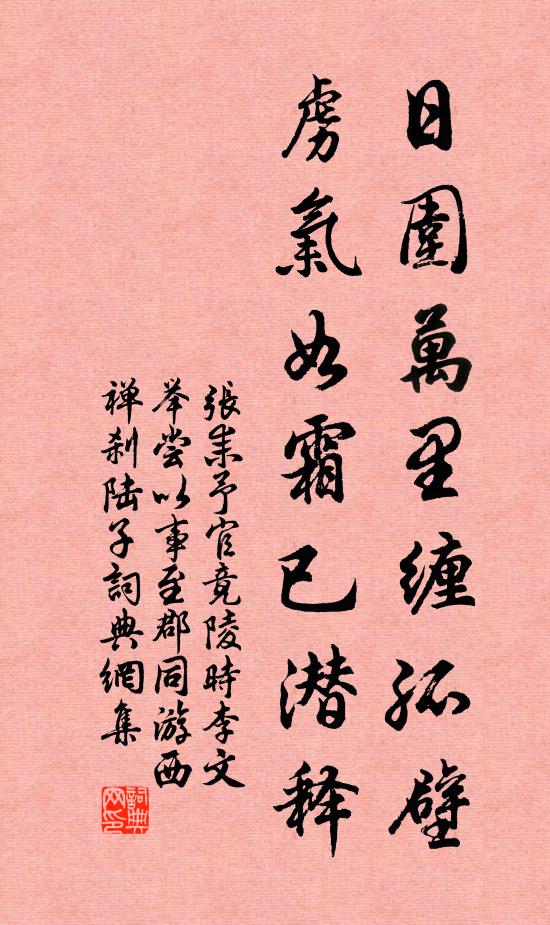 日围萬里缠孤壁
虏氣如霜已潜释
張耒予官竟陵時李文
举尝以事至郡同游西
禅刹陆子詞典網集
詞典网印